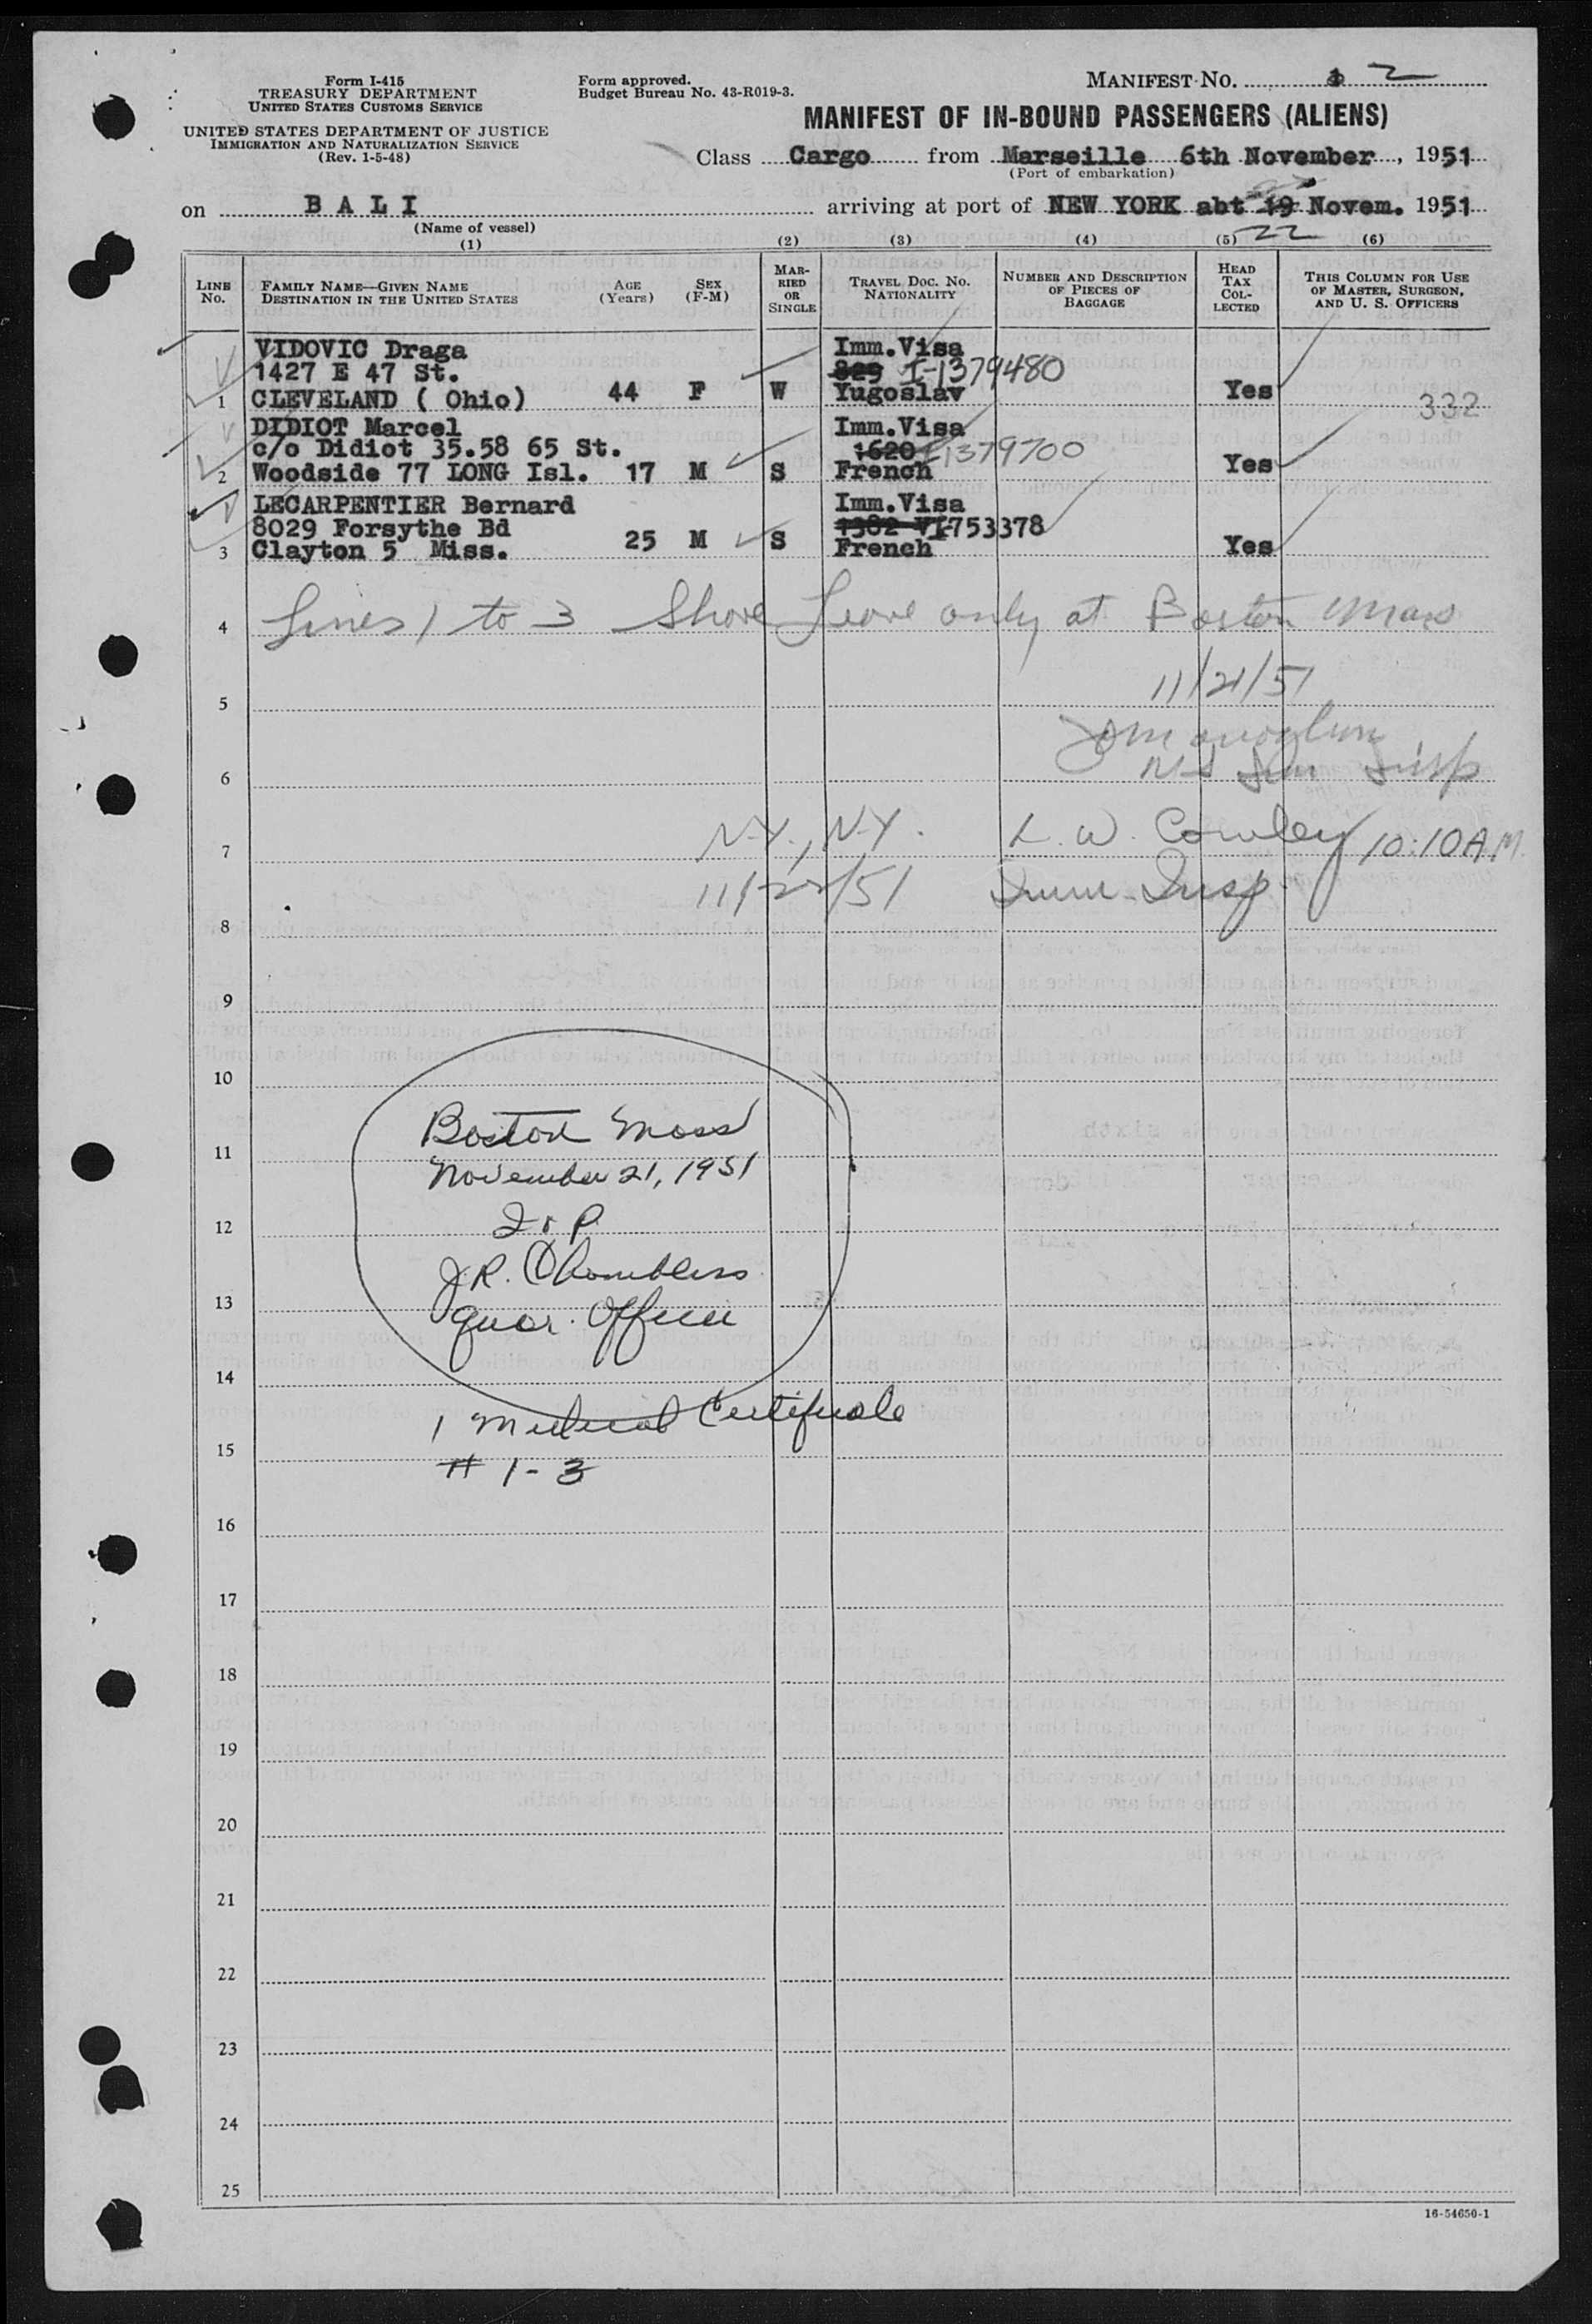 Form I-415
TREASURY DEPARTMENT
UNITED STATES CUSTOMS SERVICE
UNITED STATES DEPARTMENT OF JUSTICE
IMMIGRATION AND NATURALIZATION SERVICE
(Rev. 1-5-48)
Form approved.
Budget Bureau No. 43-R019-3.
MANIFEST NO. 2
MANIFEST OF IN-BOUND PASSENGERS (ALIENS)
Class Cargo from Marseille 6th November, 1951
(Port of embarkation)
on BALI arriving at port of NEW YORK abt 19 Novem. 1951
22
(Name of vessel)
(1) (2) (3) (4) (5) (6)
LINE No. FAMILY NAME—GIVEN NAME DESTINATION IN THE UNITED STATES AGE (Years) SEX (F-M) MARRIED OR SINGLE TRAVEL DOC. NO. NATIONALITY NUMBER AND DESCRIPTION OF PIECES OF BAGGAGE HEAD TAX COLLECTED THIS COLUMN FOR USE OF MASTER, SURGEON, AND U. S. OFFICERS
VIDOVIC Draga Imm.Visa
1427 E 47 St. 829 I-1379480
1 CLEVELAND ( Ohio) 44 F W Yugoslav Yes 332
DIDIOT Marcel Imm.Visa
c/o Didiot 35.58 65 St. 1620 I1379700
2 Woodside 77 LONG Isl. 17 M S French Yes
LECARPENTIER Bernard Imm.Visa
8029 Forsythe Bd 1382 VI753378
3 Clayton 5 Miss. 25 M S French Yes
4 Lines 1 to 3 Shore Leave only at Boston Mass
11/21/51
5
Imm Insp
6
N.Y., N.Y. L. W. Cowley 10:10 A.M.
7
11/22/51 Imm. Insp.
8
9
10
Boston Mass
11
November 21, 1951
12
J.R. Chambless
13
Quar. Officer
14
1 Medical Certificate
15
# 1-3
16
17
18
19
20
21
22
23
24
25
16-54650-1